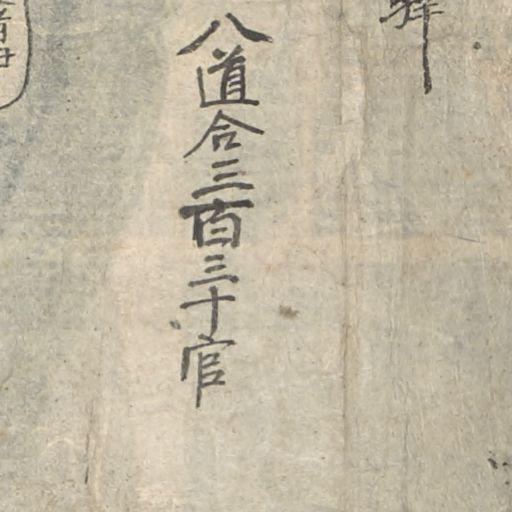 驛
八道合三百三十官